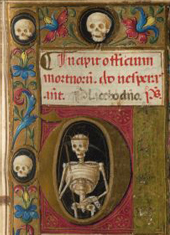 Incipit officium
mortuorū. Ad vesperas
añt. Placebo dño. ps